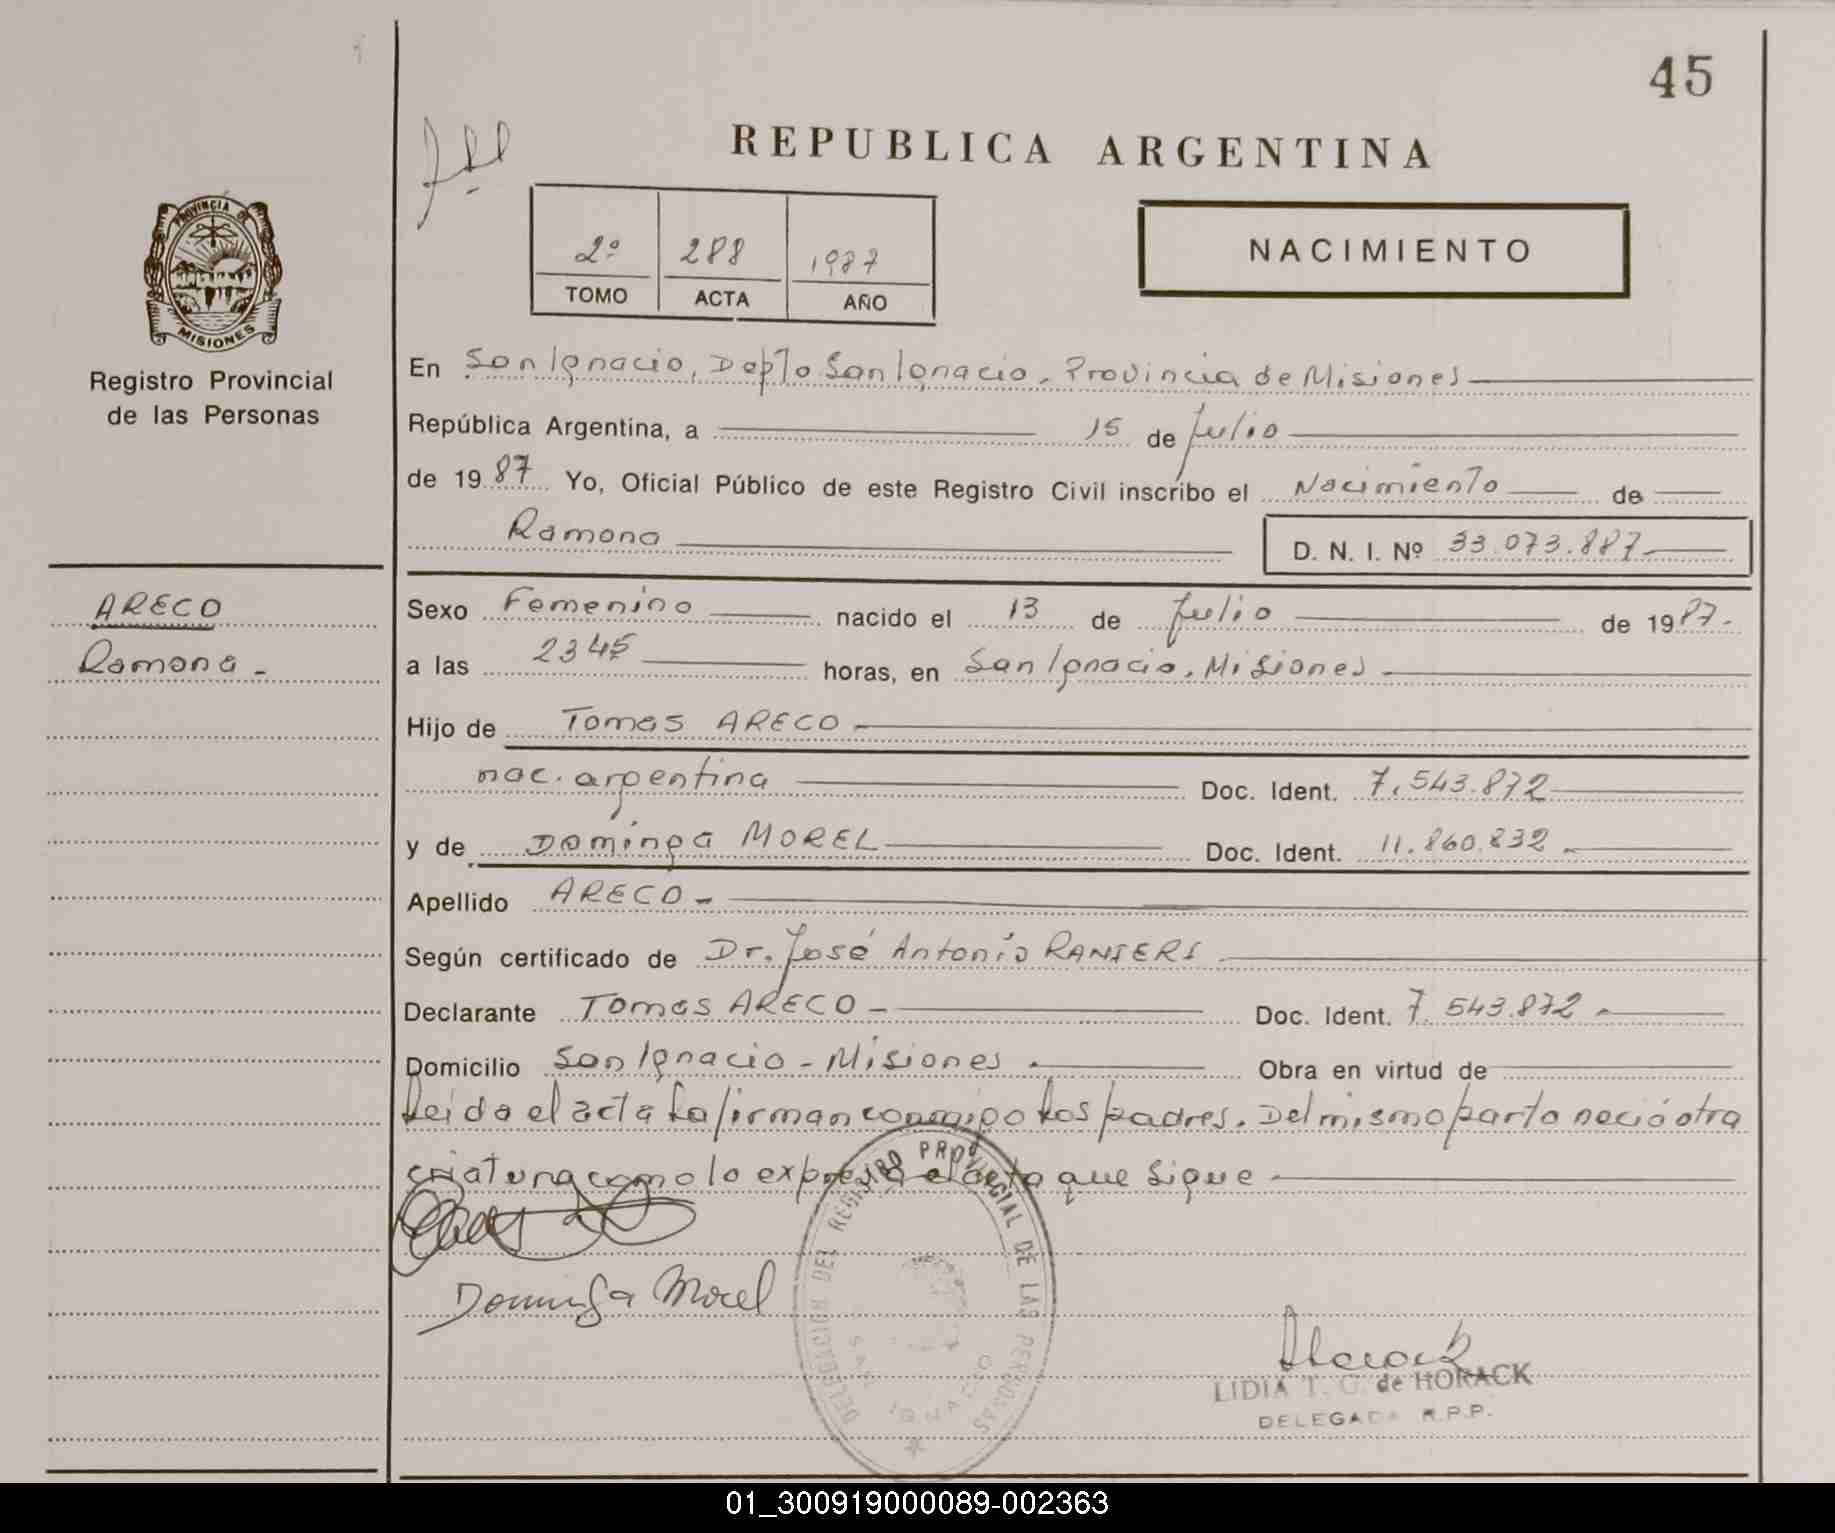 45
REPUBLICA ARGENTINA
PROVINCIA DE
MISIONES
Registro Provincial
de las Personas
2º 288 1987
TOMO ACTA AÑO
NACIMIENTO
En San Ignacio, Depto San Ignacio, Provincia de Misiones
República Argentina, a 15 de Julio
de 1987 Yo, Oficial Público de este Registro Civil inscribo el Nacimiento de
Ramona
D. N. I. Nº 33.073.887
ARECO
Ramona -
Sexo Femenino nacido el 13 de Julio de 1987.
a las 2345 horas, en San Ignacio, Misiones
Hijo de Tomas ARECO
nac. argentina Doc. Ident. 7.543.872
y de Dominga MOREL Doc. Ident. 11.860.832
Apellido ARECO -
Según certificado de Dr. José Antonio
Declarante Tomas ARECO - Doc. Ident. 7.543.872
Domicilio San Ignacio - Misiones Obra en virtud de
Leida el acta la firman conmigo los padres. Del mismo parto nació otra
criatura como lo expresa el acta que sigue
Dominga Morel
DELEGACION DEL REGISTRO PROVINCIAL DE LAS PERSONAS
SAN IGNACIO
LIDIA T. G. de HORACK
DELEGADA R.P.P.
01_300919000089-002363